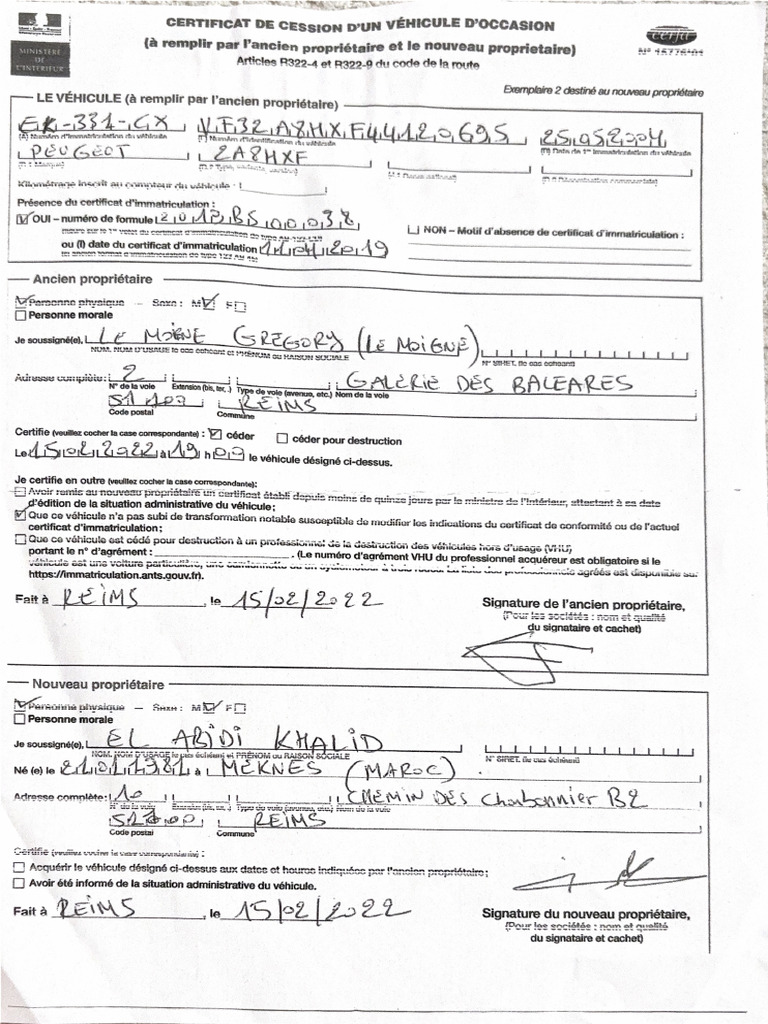 MINISTÈRE
DE
L'INTÉRIEUR
CERTIFICAT DE CESSION D'UN VÉHICULE D'OCCASION
(à remplir par l'ancien propriétaire et le nouveau proprietaire)
Articles R322-4 et R322-9 du code de la route
cerfa
N° 15776*01
Exemplaire 2 destiné au nouveau propriétaire
LE VÉHICULE (à remplir par l'ancien propriétaire)
EK-331-CX VF32A8HXF44120695 25052004
(A) Numéro d'immatriculation du véhicule (E) Numéro d'identification du véhicule (B) Date de 1re immatriculation du véhicule
PEUGEOT 2A8HXF
(D.1) Marque (D.2) Type, variante, version (J.1) Genre national (D.3) Dénomination commerciale
Kilométrage inscrit au compteur du véhicule :
Présence du certificat d'immatriculation :
OUI – numéro de formule 2013BS00038 NON – Motif d'absence de certificat d'immatriculation :
ou (I) date du certificat d'immatriculation 11042019
Ancien propriétaire
Personne physique – Sexe : M F
Personne morale
Je soussigné(e), LE MOIGNE GREGORY (LE MOIGNE)
NOM, NOM D'USAGE le cas échéant et PRÉNOM ou RAISON SOCIALE N° SIRET, le cas échéant
Adresse complète : 2 GALERIE DES BALEARES
N° de la voie Extension (bis, ter, .) Type de voie (avenue, etc.) Nom de la voie
51100 REIMS
Code postal Commune
Certifie (veuillez cocher la case correspondante) : céder céder pour destruction
Le 15022022 à 19 h 00 le véhicule désigné ci-dessus.
Je certifie en outre (veuillez cocher la case correspondante):
Avoir remis au nouveau propriétaire un certificat établi depuis moins de quinze jours par le ministre de l'Intérieur, attestant à sa date
d'édition de la situation administrative du véhicule;
Que ce véhicule n'a pas subi de transformation notable susceptible de modifier les indications du certificat de conformité ou de l'actuel
certificat d'immatriculation;
Que ce véhicule est cédé pour destruction à un professionnel de la destruction des véhicules hors d'usage (VHU)
portant le n° d'agrément : . (Le numéro d'agrément VHU du professionnel acquéreur est obligatoire si le
véhicule est une voiture particulière, une camionnette ou un cyclomoteur à trois roues. La liste des professionnels agréés est disponible sur
https://immatriculation.ants.gouv.fr).
Fait à REIMS , le 15/02/2022 Signature de l'ancien propriétaire,
(Pour les sociétés : nom et qualité
du signataire et cachet)
Nouveau propriétaire
Personne physique – Sexe : M F
Personne morale
Je soussigné(e), EL ABIDI KHALID
NOM, NOM D'USAGE le cas échéant et PRÉNOM ou RAISON SOCIALE N° SIRET, le cas échéant
Né (e) le 21011981 à MEKNES (MAROC)
Adresse complète: 10 CHEMIN DES Charbonnier B2
N° de la voie Extension (bis, ter, .) Type de voie (avenue, etc.) Nom de la voie
REIMS
Code postal Commune
Certifie (veuillez cocher la case correspondante) :
Acquérir le véhicule désigné ci-dessus aux dates et heures indiquées par l'ancien propriétaire;
Avoir été informé de la situation administrative du véhicule.
Fait à REIMS , le 15/02/2022 Signature du nouveau propriétaire,
(Pour les sociétés : nom et qualité
du signataire et cachet)